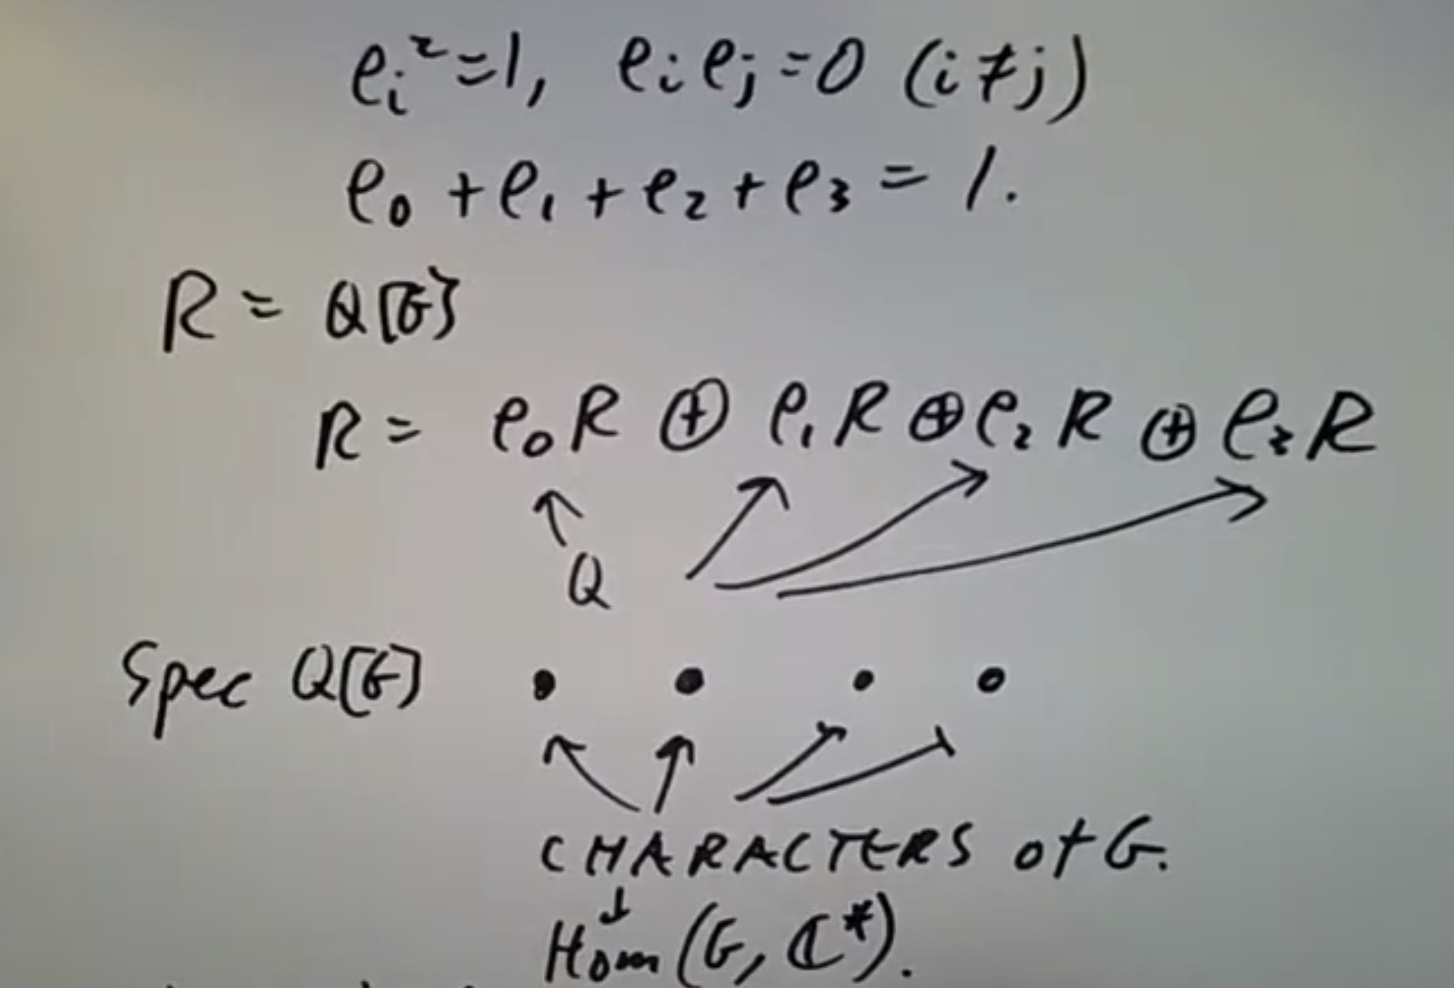 e_i² = 1, e_i e_j = 0 (i ≠ j)
e_0 + e_1 + e_2 + e_3 = 1.
R = Q[G]
R = e_0 R ⊕ e_1 R ⊕ e_2 R ⊕ e_3 R
Q
Spec Q[G]
CHARACTERS of G.
Hom (G, ℂ*).